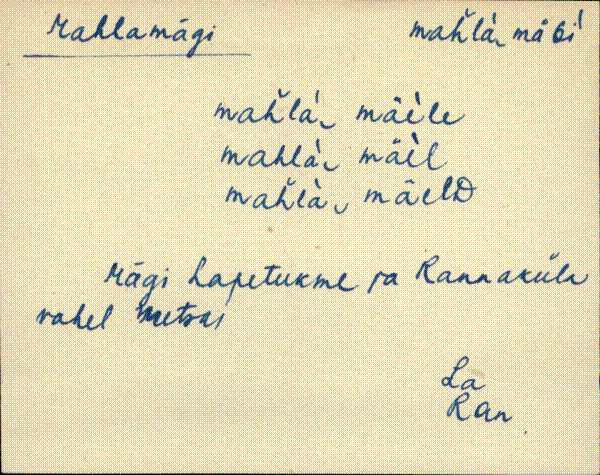 Mahlamägi mah̆là̬ mäGì
mah̆là̬ mäèle
mahlà̬ mäèl
mah̆là̬ mäelD
Mägi Lapetukme ja Rannaküla
vahel metsas
La
Ran